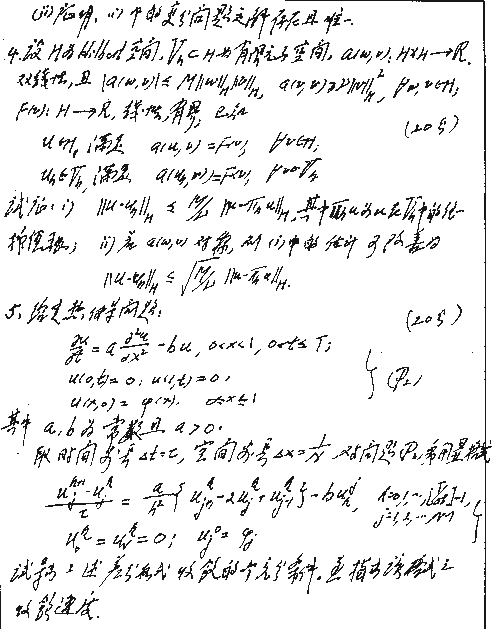 (ii) 证明, (i) 中的变分问题之解存在且唯一.
4. 设 H 为 Hilbert 空间, V_h ⊂ H 为有限元子空间, a(w,v): H×H → R.
双线性, 且 |a(w,v)| ≤ M||w||_H ||v||_H, a(v,v) ≥ ν||v||_H^2, ∀w,v∈H,
F(v): H → R, 线性, 有界, 已知
(20分)
u∈H, 满足 a(u,v) = F(v), ∀v∈H,
u_h∈V_h 满足 a(u_h,v) = F(v), ∀v∈V_h
试证: i) ||u-u_h||_H ≤ M/ν ||u-π_h u||_H, 其中 π_h u 为 u 在 V_h 中的任一
ii) 若 a(w,v) 对称, 则 (i) 中的估计可改善为
||u-u_h||_H ≤ √(M/ν) ||u-π_h u||_H.
5. 给定热传导问题:
(20分)
∂u/∂t = a ∂²u/∂x² - bu, 0<x<1, 0<t≤T;
u(0,t) = 0, u(1,t) = 0,
u(x,0) = φ(x), 0≤x≤1
} (P_2)
其中 a, b 为常数且 a>0.
取时间步长 Δt=τ, 空间步长 Δx = 1/N, 对问题 P_2 采用显格式
(u_j^{k+1} - u_j^k)/τ = a/h² { u_{j+1}^k - 2u_j^k + u_{j-1}^k } - b u_j^k, k=0,…,[T/τ]-1, j=1,2,…,N-1
u_0^k = u_N^k = 0; u_j^0 = φ_j
试导出上述差分格式收敛的一个充分条件, 并指出该格式之
收敛速度.